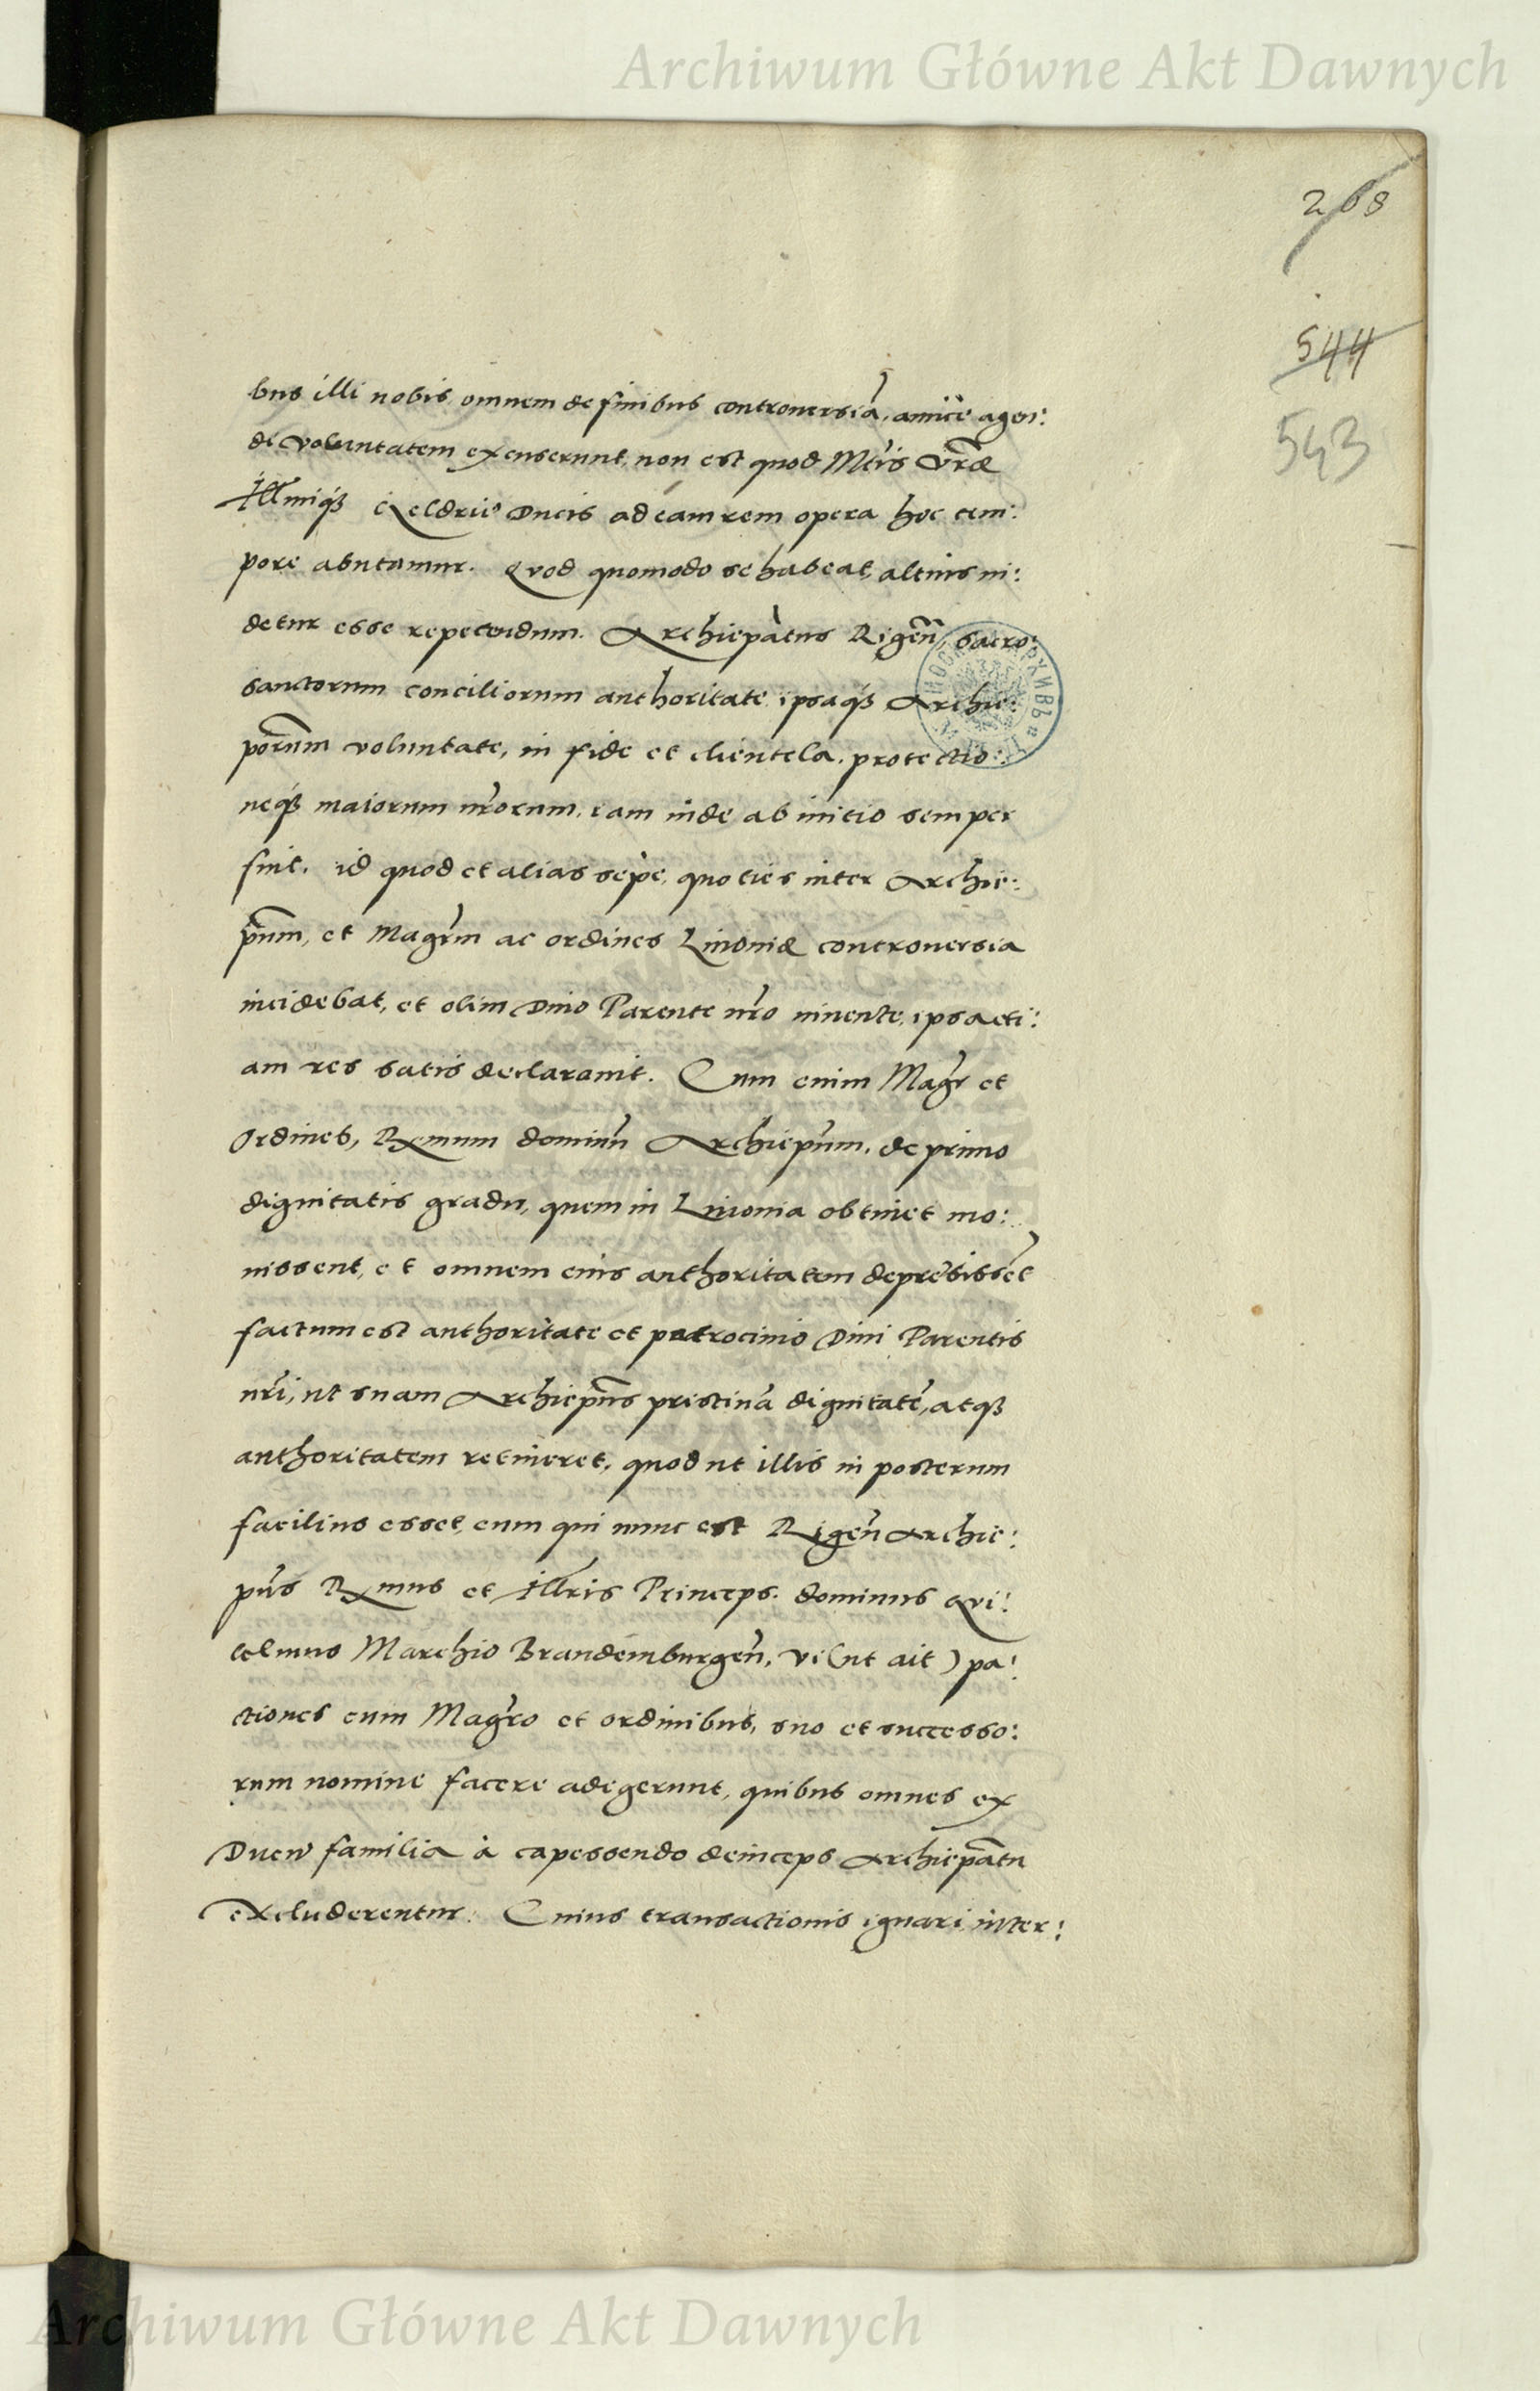 Archiwum Główne Akt Dawnych
268
544
543
bus illi nobis omnem de finibus controuersiã, amice agen:
di voluntatem excuserunt, non est quod Mtis Vræ
Illmiq̃ Geldriæ Ducis ad eam rem opera hoc tem:
pore abutamur. Quod quomodo se habeat, altius ui:
detur esse repetendum. Archiepatus Rigeñ, sacro:
sanctorum conciliorum authoritate ipsaq̃ Archie:
porum voluntate, in fide et clientela, protectio:
neq̃ maiorum nrorum, iam inde ab initio semper
fuit. id quod et alias sepe, quoties inter Archie:
pum, et Magrm ac ordines Liuoniæ controuersia
incidebat, et olim Diuo Parente nro uiuente, ipsa eti:
am res satis declarauit. Cum enim Magr et
Ordines, Rxmum dominũ Archiepum, de primo
dignitatis gradu, quem in Liuonia obtinet mo:
uissent, et omnem eius authoritatem depressissẽt
factum est authoritate et patrocinio Diui Parentis
nri, ut suam Archiepus pristinã dignitatẽ, atq̃
authoritatem retineret, quod ut illis in posterum
facilius esset, eum qui nunc est Rigeñ Archie:
pus Rxmus et Illris Princeps dominus Gui:
lelmus Marchio Brandemburgeñ, vi (ut ait) pa:
ctiones cum Magro et ordinibus, suo et successo:
rum nomine facere adegerunt, quibus omnes ex
Ducũ familia à capessendo deinceps Archiepatu
excluderentur. Cuius transactionis ignari inter:
Archiwum Główne Akt Dawnych